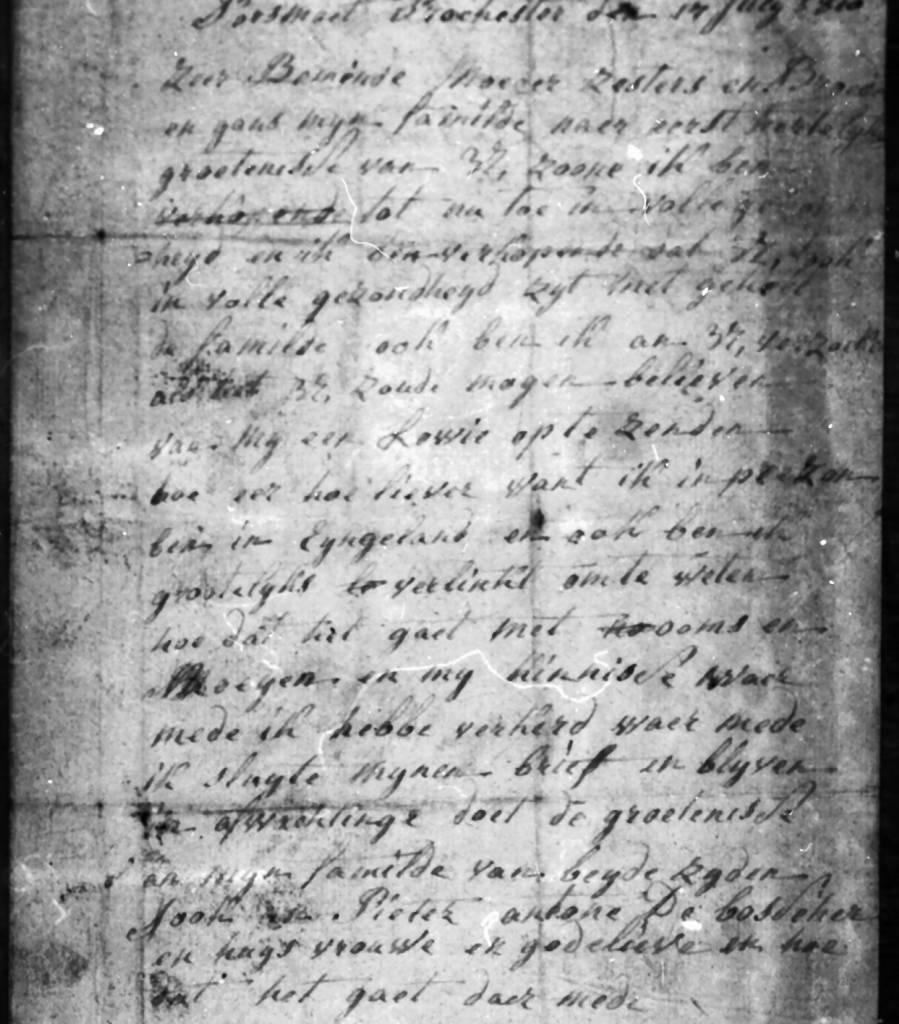 Porsmoet Rochester den 14 July
Zeer Beminde Moeder Zusters en
en gans myn familde naer eerst
groetenisse van UL, zoone ik ben
tot nu toe in volle
heyd en ik ben verhopende dat UL, ook
in volle gezondheyd zyt met geheel
de familde ook ben ik an UL, verzoek
als het UL, zoude mogen believen
van my een Lowie op te zenden
hoe eer hoe liever want ik in prizon
ben in Eyngeland en ook ben ik
grootelyks verlinkt om te weten
hoe dat hit gaet met ooms en
Moeyen en my kinnisse waer
mede ik hebbe verkerd waer mede
ik sluyte mynen brief en blyven
in afwachtinge doet de groetenisse
an myn familde van beyde zyden
ook an Pieter antone De
en huys vrouwe en godelieve en hoe
dat het gaet daer mede